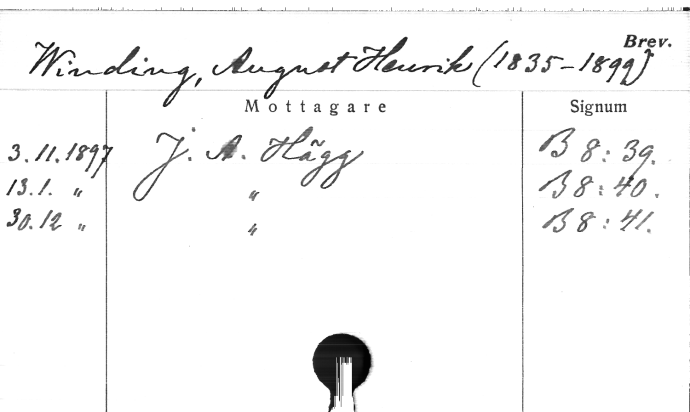 Brev.
Winding, August Henrik (1835-1899)
Mottagare Signum
3.11.1897 J. A. Hägg B 8:39.
13.1. " " B 8:40.
30.12 " " B 8:41.